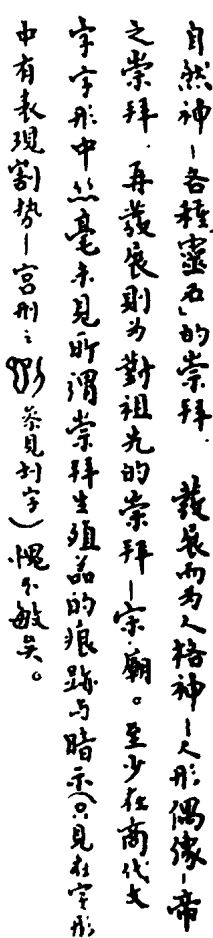 自然神—各種靈石的崇拜. 發展而为人格神—人形偶像—帝
之崇拜. 再發展則为對祖先的崇拜—宗.廟。至少在商代文
字字形中丝毫未見所谓崇拜生殖器的痕跡与暗示(只見在字形
中有表現割势—宫刑之 参見刻字)愧不敏矣。